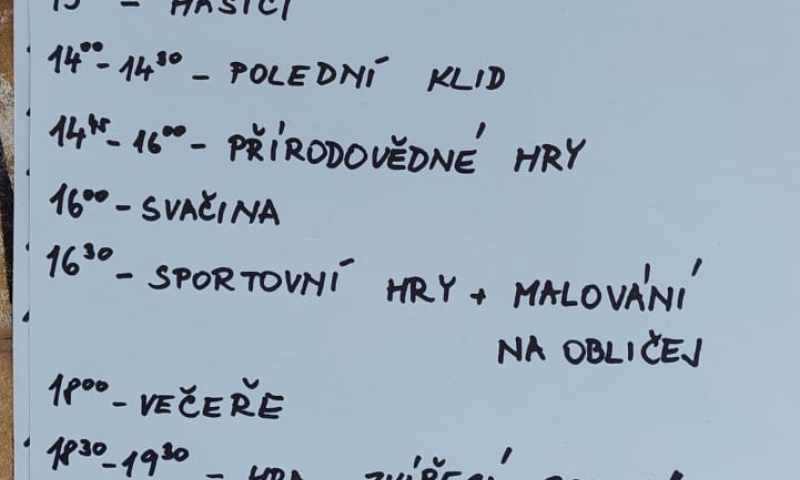 – HASIČI
14⁰⁰- 14³⁰ – POLEDNÍ KLID
14⁴⁵- 16⁰⁰ – PŘÍRODOVĚDNÉ HRY
16⁰⁰ – SVAČINA
16³⁰ – SPORTOVNÍ HRY + MALOVÁNÍ
NA OBLIČEJ
18⁰⁰ – VEČEŘE
18³⁰-19³⁰ – HRA